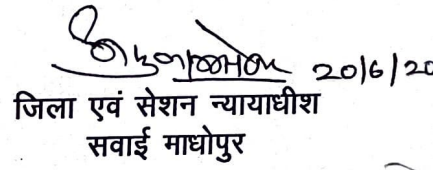 20/6/20
जिला एवं सेशन न्यायाधीश
सवाई माधोपुर